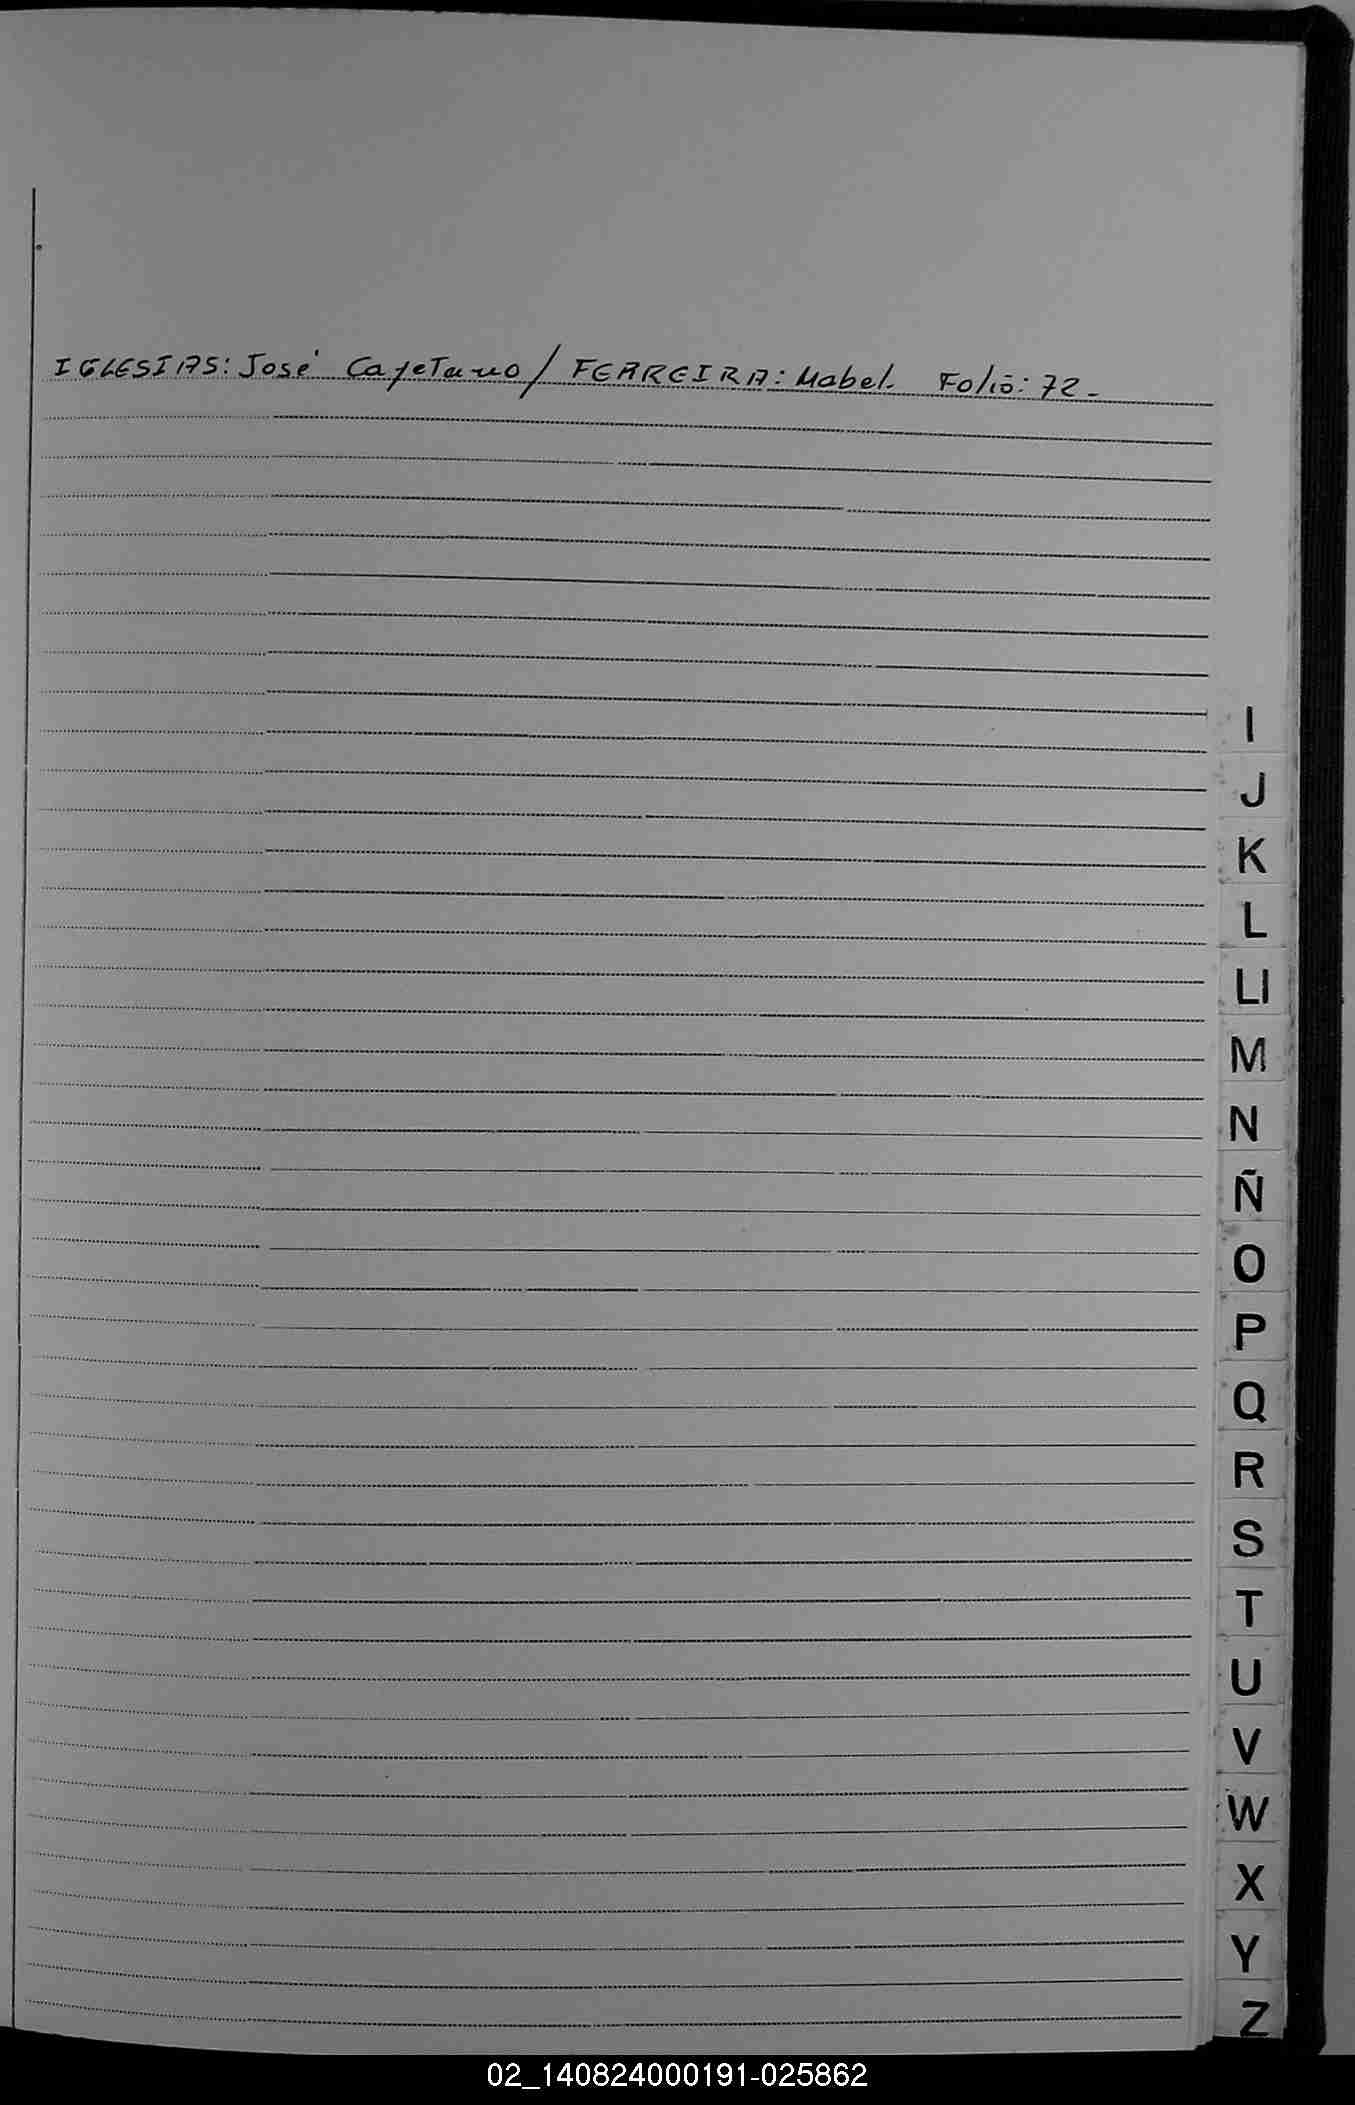 IGLESIAS: José Cayetano / FERREIRA: Mabel. Folio: 72.-
I
J
K
L
Ll
M
N
Ñ
O
P
Q
R
S
T
U
V
W
X
Y
Z
02_140824000191-025862